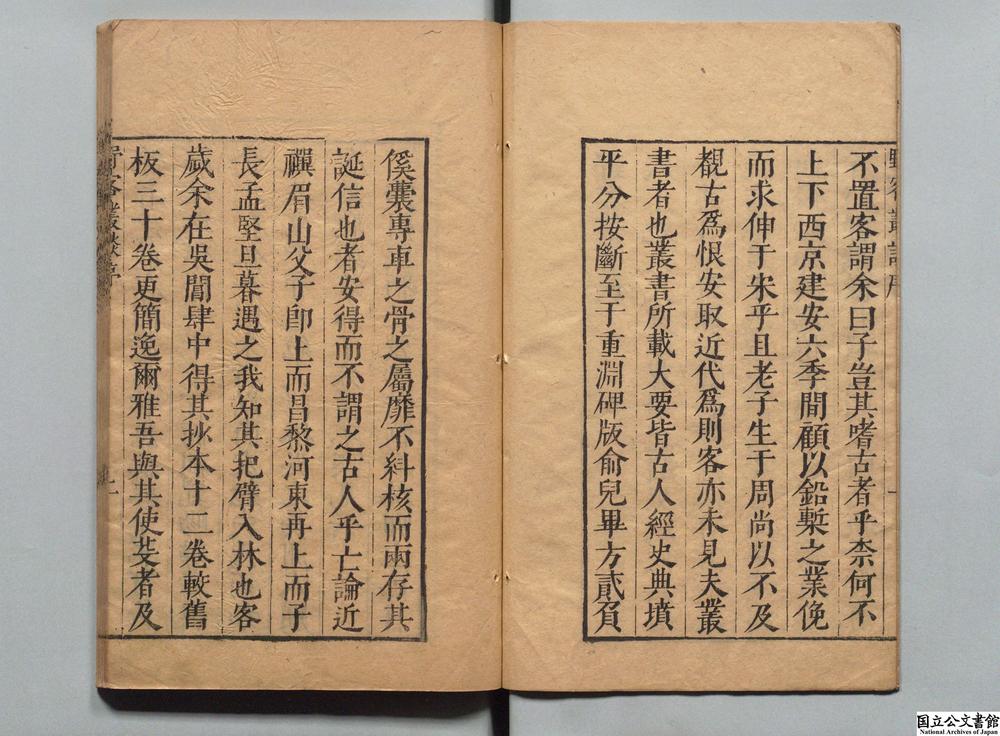 不置客謂余曰子豈其嗜古者乎柰何不
上下西京建安六季間顧以鉛槧之業俛
而求伸于宋乎且老子生于周尚以不及
覩古爲恨安取近代爲則客亦未見夫叢
書者也叢書所載大要皆古人經史典墳
平分按斷至于重淵碑版俞兒畢方貳負
傒囊專車之骨之屬靡不斜核而兩存其
誕信也者安得而不謂之古人乎亡論近
禩眉山父子卽上而昌黎河東再上而子
長孟堅旦暮遇之我知其把臂入林也客
歲余在吳閶肆中得其抄本十二卷較舊
板三十卷更簡逸爾雅吾與其使芟者及
国立公文書館
National Archives of Japan